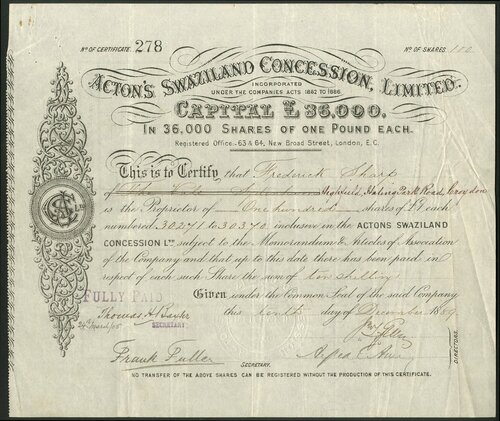 No OF CERTIFICATE 278
No OF SHARES 100
ACTON'S SWAZILAND CONCESSION, LIMITED.
INCORPORATED
UNDER THE COMPANIES ACTS 1862 TO 1886.
CAPITAL £36,000.
IN 36,000 SHARES OF ONE POUND EACH.
Registered Office, 63 & 64, New Broad Street, London, E.C.
This is to Certify that Frederick Sharp
of Highfield, Park Road, Croydon
is the Proprietor of One hundred shares of £1 each
numbered 30271 to 30370 inclusive in the ACTONS SWAZILAND
CONCESSION Ltd subject to the Memorandum & Articles of Association
of the Company and that up to this date there has been paid in
respect of each such Share the sum of ten shillings
Given under the Common Seal of the said Company
this tenth day of December 1889.
FULLY PAID
Thomas A Baxter
SECRETARY
Frank Fuller
SECRETARY.
DIRECTORS.
NO TRANSFER OF THE ABOVE SHARES CAN BE REGISTERED WITHOUT THE PRODUCTION OF THIS CERTIFICATE.